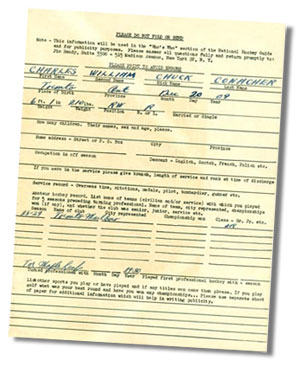 PLEASE DO NOT FOLD OR BEND
Note - This information will be used in the "Who's Who" section of the National Hockey Guide
and for publicity purposes. Please answer all questions fully and return promptly to:
Jim Hendy, Suite 5300 - 525 Madison Avenue, New York 22, N. Y.
PLEASE PRINT TO AVOID ERRORS
CHARLES WILLIAM CHUCK CONACHER
First Name Middle Name Nick Name Last Name
Toronto Ont Dec 20 09
Place of Birth Province Month Day Year
6 ft. 1 in 210 lbs. RW R
Height Weight Position R. or L. Married or Single
How many children. Their names, sex and age, please.
Home address - Street or P. O. Box City Province
Occupation in off season Descent - English, Scotch, French, Polish etc.
If you were in the service please give branch, length of service and rank at time of discharge
Service record - Overseas time, citations, medals, pilot, bombardier, gunner etc.
Amateur hockey record. List names of teams (civilian and/or service) with which you played
for 5 seasons preceding turning professional. Name of team, city represented, championships
won (if any), and whether the club was senior, junior, service etc.
Season Name of club City represented Championship won Class - Sr. Jr. etc.
28-29 Toronto Marlboros
Tor Maple Leafs
Turned professional with Month Day Year Played first professional hockey with - season
List other sports you play or have played and if any titles won name them please. If you play
golf what was your best round and have you won any championships... Please use separate sheet
of paper for additional information which will help in writing publicity.